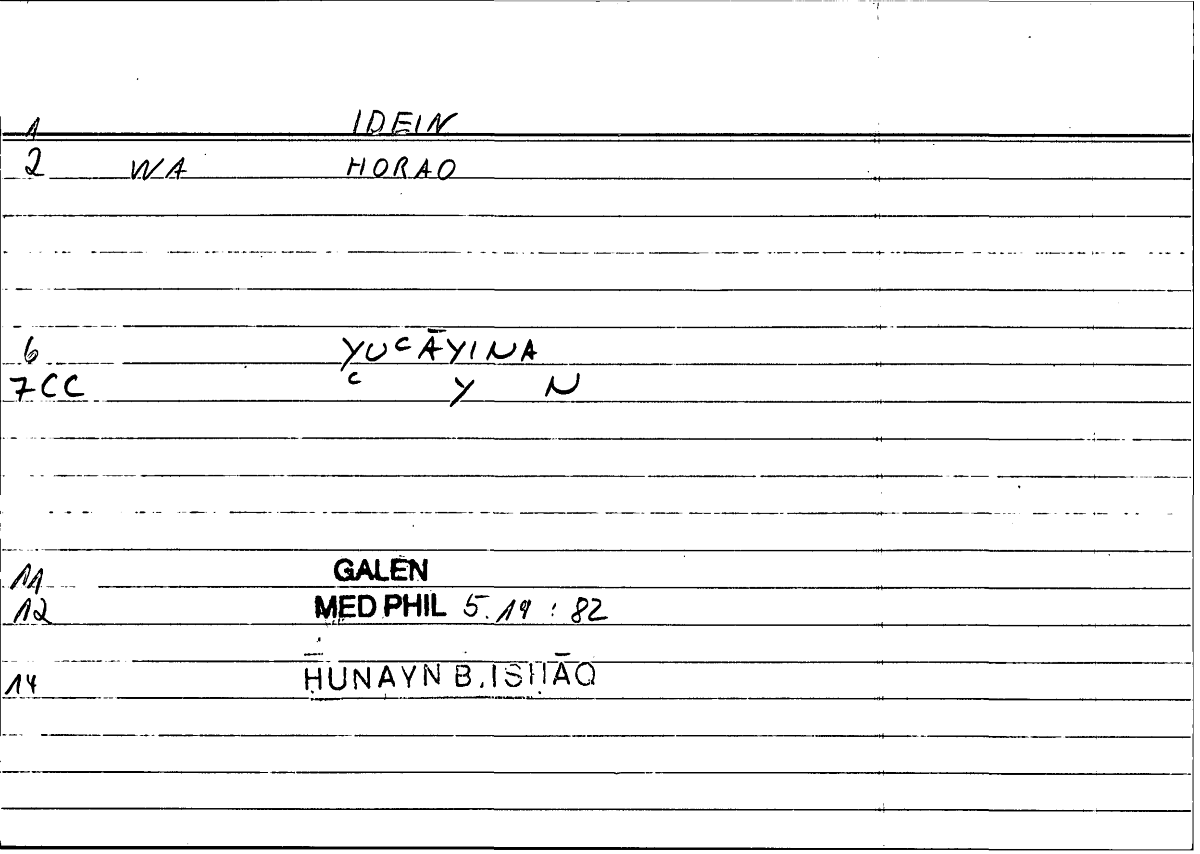 1 IDEIN
2 WA HORAO
6 YUᶜĀYINA
7CC ᶜ Y N
11 GALEN
12 MED PHIL 5.19 : 82
14 ḤUNAYN B. ISḤĀQ